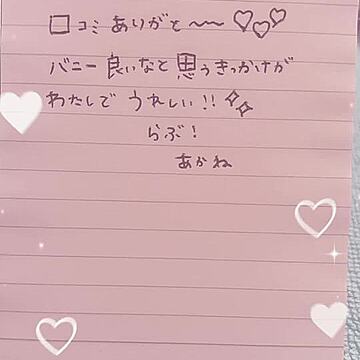 口コミありがと〜〜♡♡♡
バニー良いなと思うきっかけが
わたしでうれしい!!✧✧
らぶ!
あかね